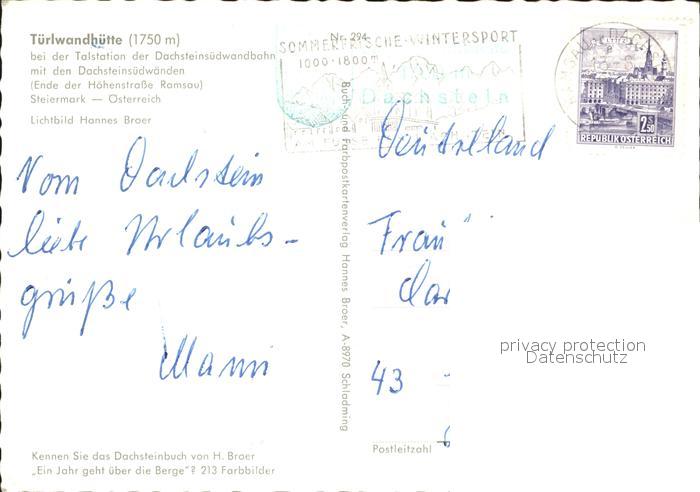 Türlwandhütte (1750 m)
bei der Talstation der Dachsteinsüdwandbahn
mit den Dachsteinsüdwänden
(Ende der Höhenstraße Ramsau)
Steiermark — Österreich
Lichtbild Hannes Broer
Nr. 294
SOMMERFRISCHE-WINTERSPORT
1000-1800m
Dachstein
2.50
REPUBLIK ÖSTERREICH
Vom Dachstein
liebe Urlaubs-
grüße
Mami
Buch- und Farbpostkartenverlag Hannes Broer, A-8970 Schladming
Deutschland
Frau
43
privacy protection
Datenschutz
Postleitzahl
Kennen Sie das Dachsteinbuch von H. Broer
„Ein Jahr geht über die Berge"? 213 Farbbilder